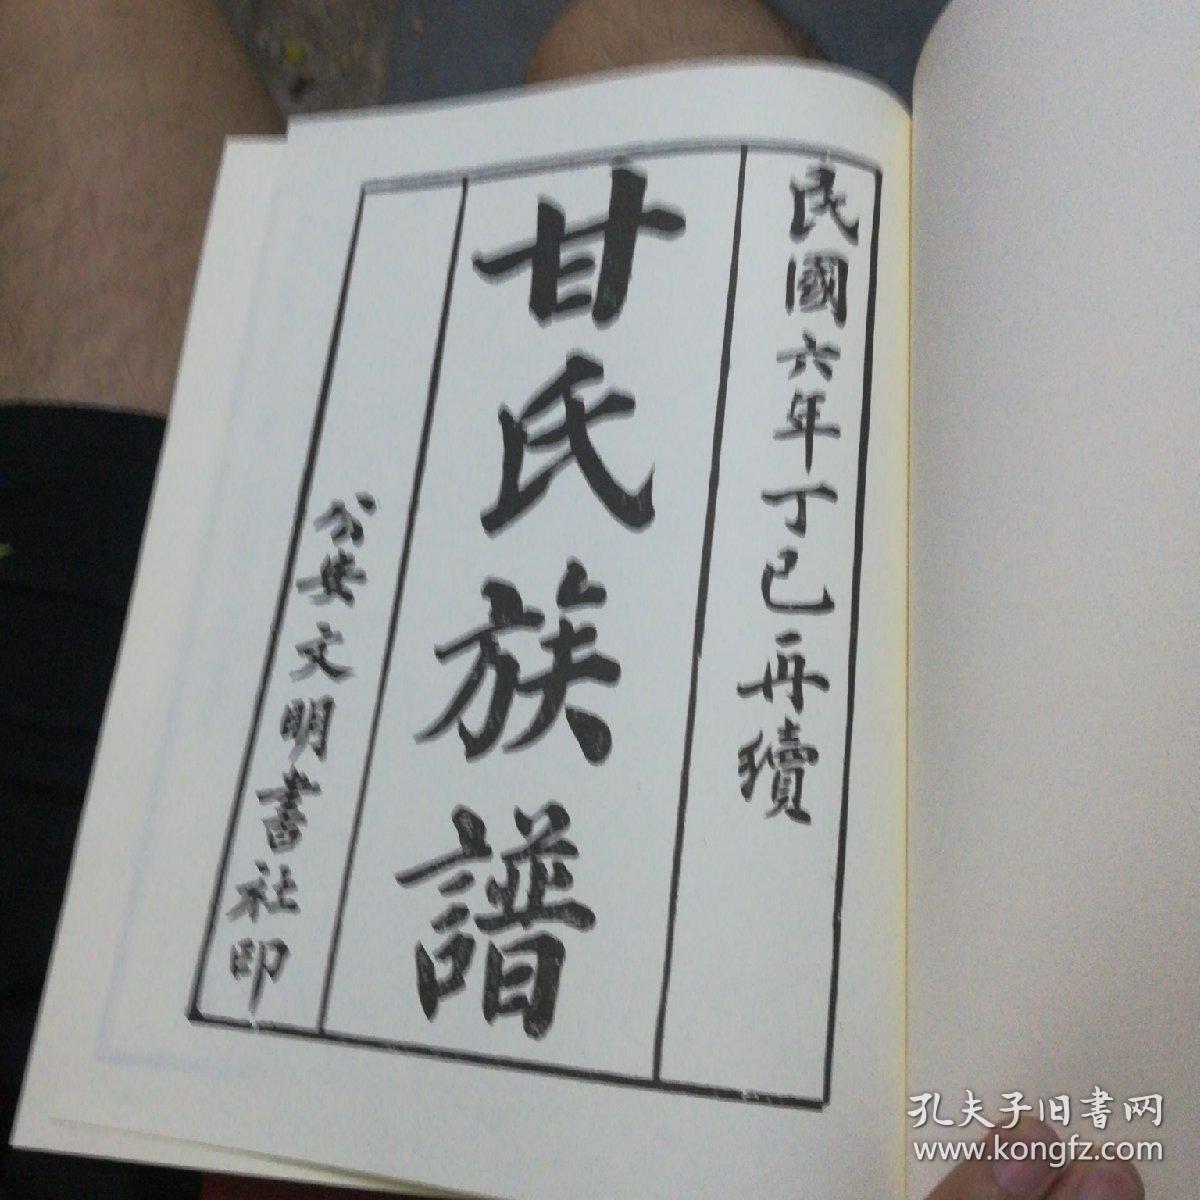 民國六年丁巳再續
甘氏族譜
公安文明書社印
孔夫子旧書网
www.kongfz.com